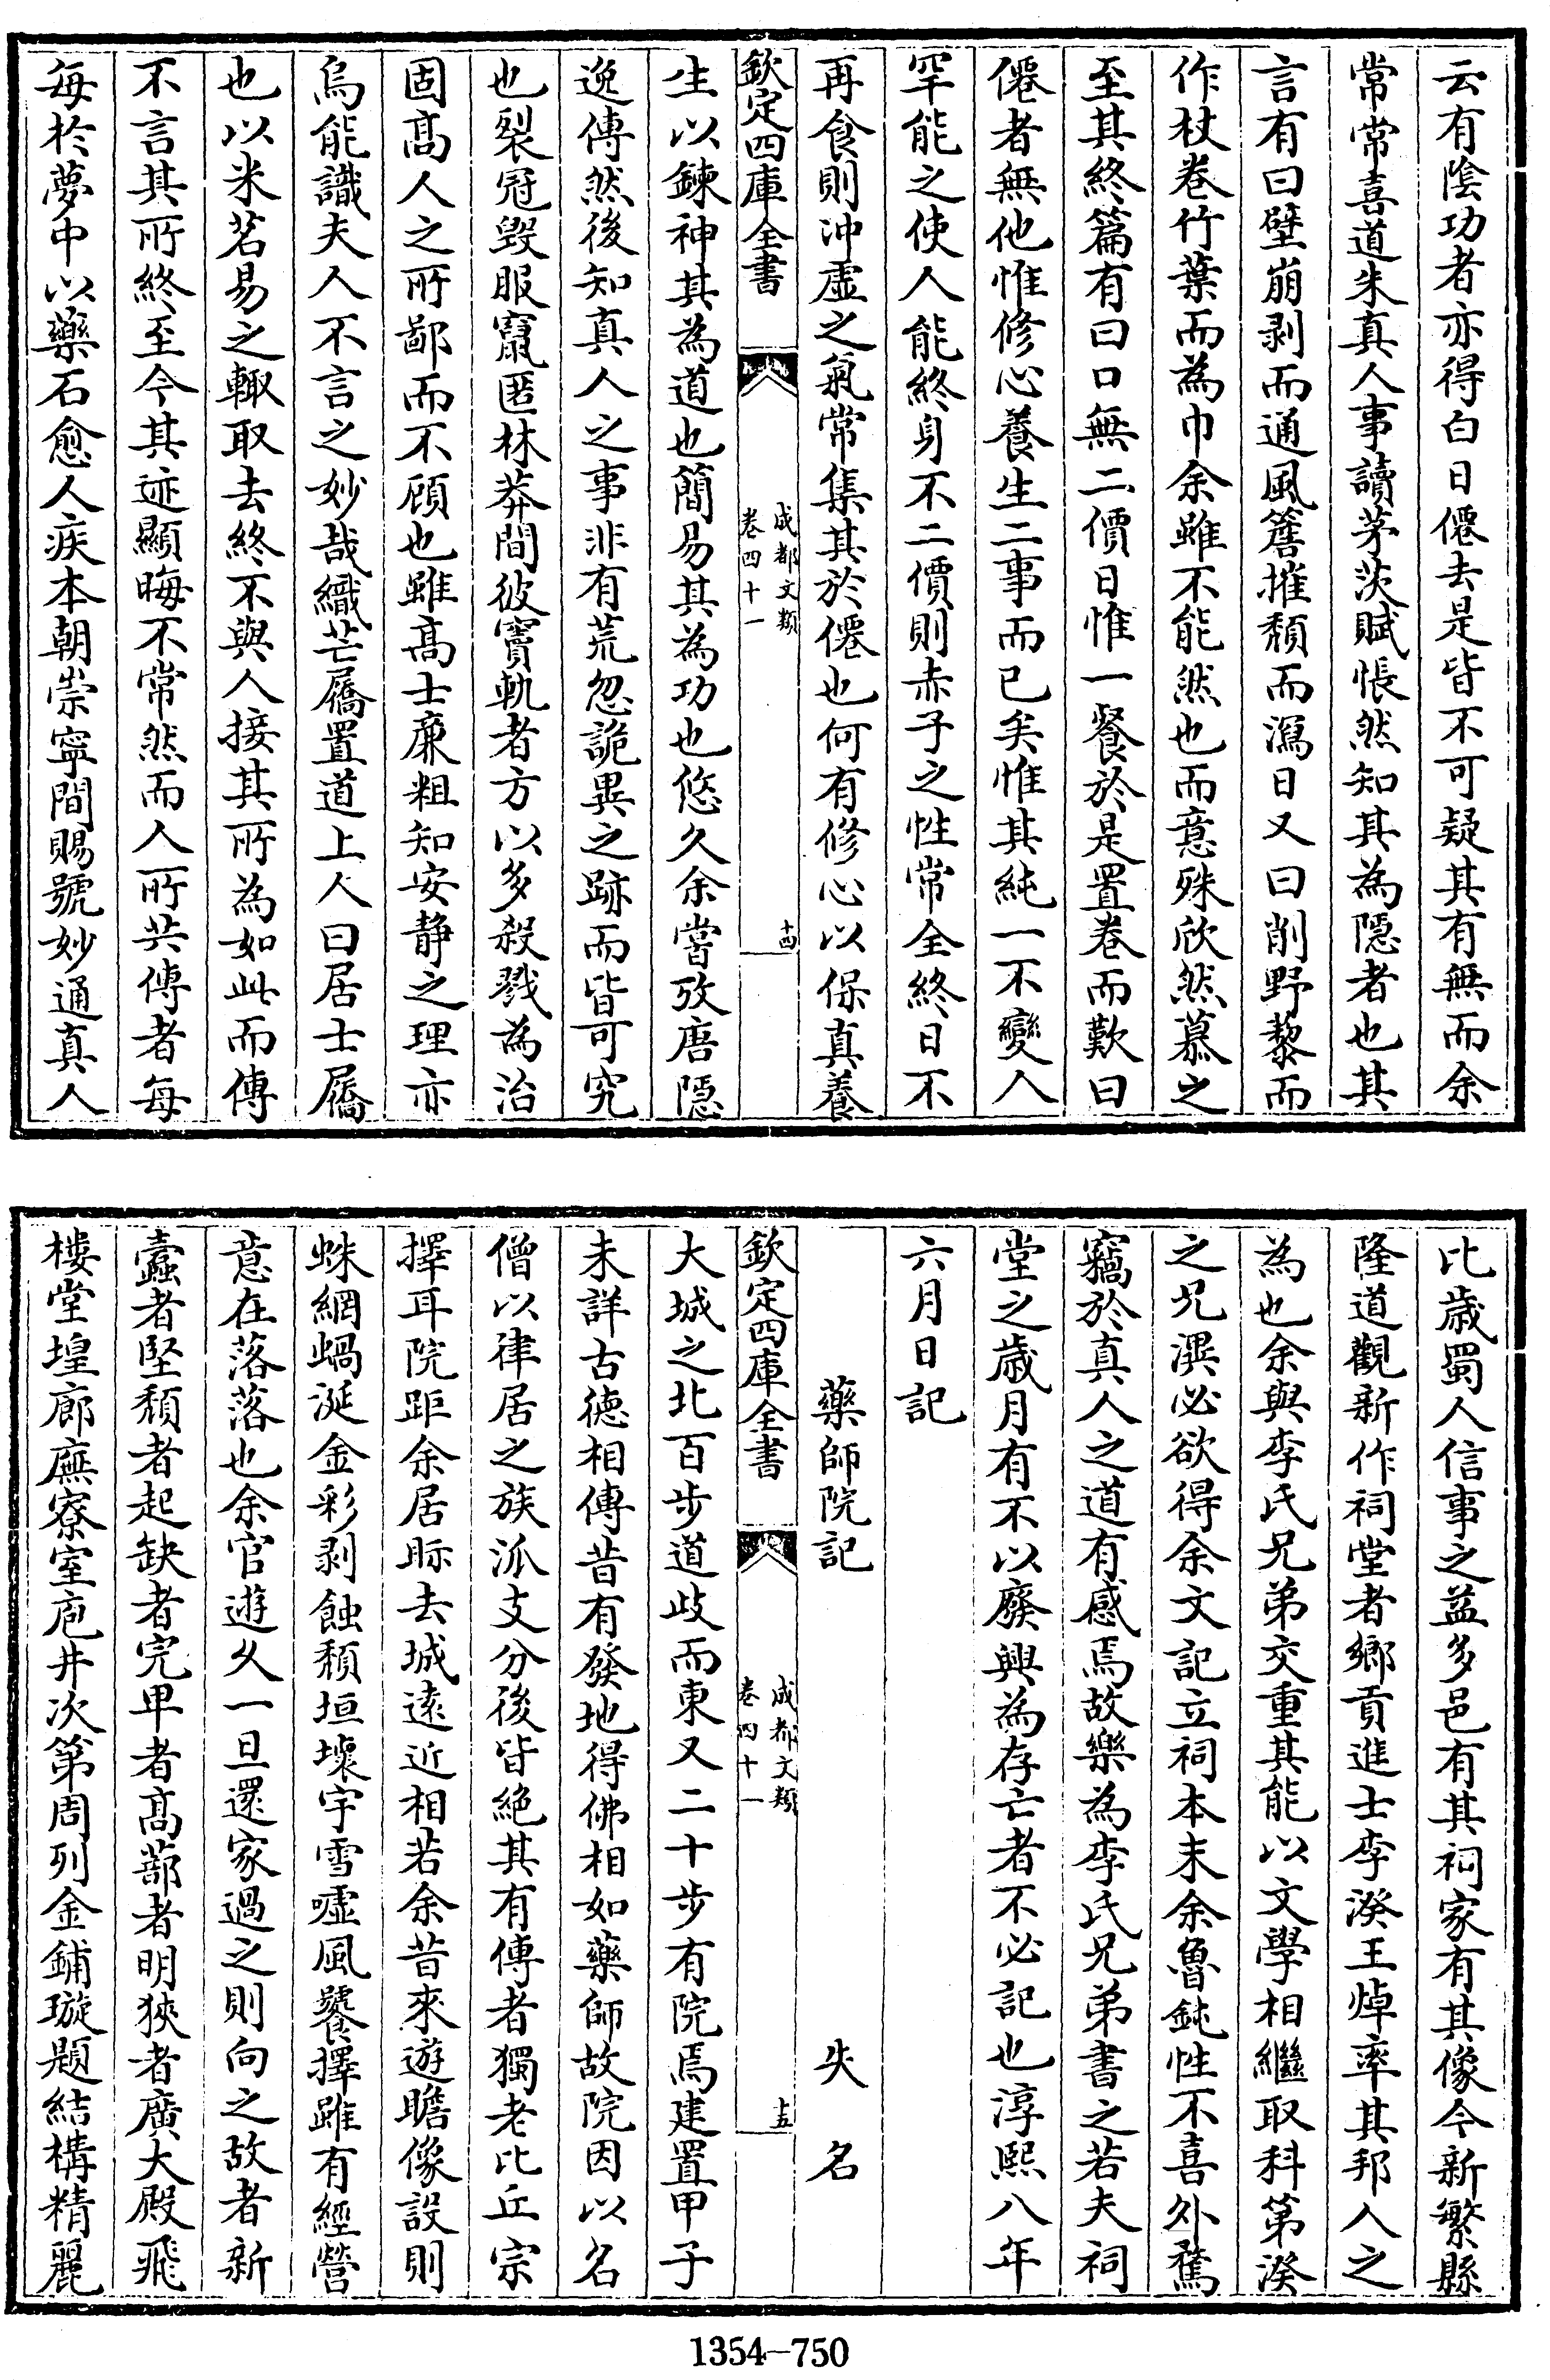 云有陰功者亦得白日僊去是皆不可疑其有無而余
常常喜道朱真人事讀茅茨賦悵然知其為隱者也其
言有曰壁崩剥而通風簷摧頽而瀉日又曰削野藜而
作杖卷竹葉而為巾余雖不能然也而意殊欣然慕之
至其終篇有曰口無二價日惟一餐於是置卷而歎曰
僊者無他惟修心養生二事而已矣惟其純一不變人
罕能之使人能終身不二價則赤子之性常全終日不
再食則沖虛之氣常集其於僊也何有修心以保真養
欽定四庫全書
成都文類
卷四十一
十四
生以鍊神其為道也簡易其為功也悠久余嘗攷唐隱
逸傳然後知真人之事非有荒忽詭異之跡而皆可究
也裂冠毁服竄匿林莽間彼竇軌者方以多殺戮為治
固髙人之所鄙而不顧也雖髙士亷粗知安静之理亦
烏能識夫人不言之妙哉織芒屩置道上人曰居士屩
也以米茗易之輙取去終不與人接其所為如此而傳
不言其所終至今其迹顯晦不常然而人所共傳者每
每於夢中以藥石愈人疾本朝崇寧間賜號妙通真人
比歲蜀人信事之益多邑有其祠家有其像今新繁縣
隆道觀新作祠堂者鄉貢進士李湀王焯率其邦人之
為也余與李氏兄弟交重其能以文學相繼取科第湀
之兄潩必欲得余文記立祠本末余魯鈍性不喜外騖
竊於真人之道有感焉故樂為李氏兄弟書之若夫祠
堂之歲月有不以廢興為存亡者不必記也淳熙八年
六月日記
藥師院記　失名
欽定四庫全書
成都文類
卷四十一
十五
大城之北百步道歧而東又二十步有院焉建置甲子
未詳古徳相傳昔有發地得佛相如藥師故院因以名
僧以律居之族泒支分後皆絶其有傳者獨老比丘宗
擇耳院距余居眎去城逺近相若余昔來遊瞻像設則
蛛網蝸涎金彩剥蝕頽垣壊宇雪嘘風饕擇雖有經營
意在落落也余官遊乆一旦還家過之則向之故者新
蠧者堅頽者起缺者完卑者髙蔀者明狹者廣大殿飛
樓堂堭廊廡寮室庖井次第周列金鋪璇題結構精麗
1354-750